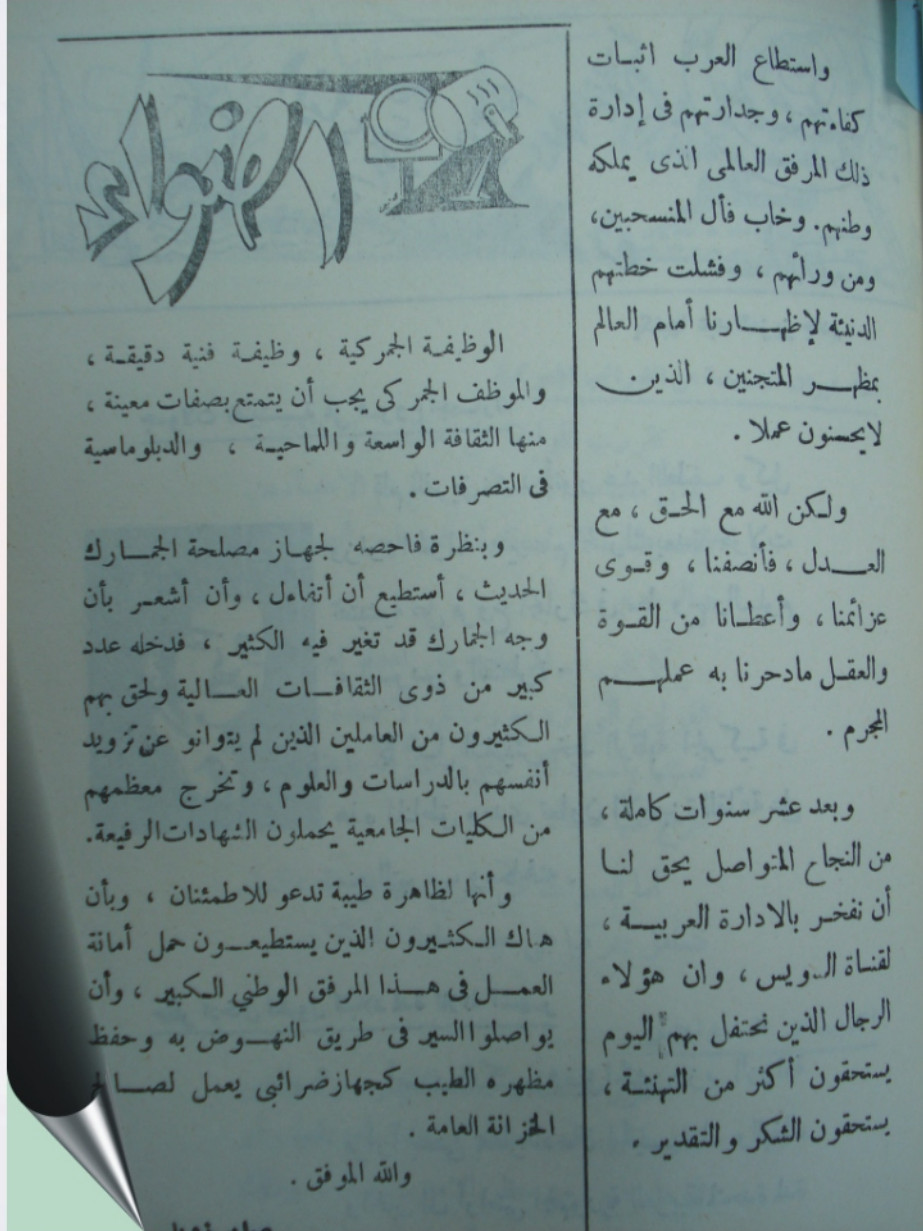 واستطاع العرب اثبات
كفاءتهم ، وجدارتهم فى إدارة
ذلك المرفق العالمى الذى يملكه
وطنهم . وخاب فأل المنسحبين ،
ومن ورائهم ، وفشلت خطتهم
الدنيئة لإظهارنا أمام العالم
بمظهر المتجنين ، الذين
لايحسنون عملا .
ولكن الله مع الحق ، مع
العدل ، فأنصفنا ، وقوى
عزائمنا ، وأعطانا من القوة
والعقل مادحرنا به عملهم
المجرم .
وبعد عشر سنوات كاملة ،
من النجاح المتواصل يحق لنا
أن نفخر بالادارة العربية ،
لقناة السويس ، وان هؤلاء
الرجال الذين نحتفل بهم اليوم
يستحقون أكثر من التهنئة ،
يستحقون الشكر والتقدير .
اضواء
الوظيفة الجمركية ، وظيفة فنية دقيقة ،
والموظف الجمركى يجب أن يتمتع بصفات معينة ،
منها الثقافة الواسعة واللماحية ، والدبلوماسية
فى التصرفات .
وبنظرة فاحصه لجهاز مصلحة الجمارك
الحديث ، أستطيع أن أتفاءل ، وأن أشعر بأن
وجه الجمارك قد تغير فيه الكثير ، فدخله عدد
كبير من ذوى الثقافات العالية ولحق بهم
الكثيرون من العاملين الذين لم يتوانو عن تزويد
أنفسهم بالدراسات والعلوم ، وتخرج معظمهم
من الكليات الجامعية يحملون الشهادات الرفيعة .
وأنها لظاهرة طيبة تدعو للاطمئنان ، وبأن
هناك الكثيرون الذين يستطيعون حمل أمانة
العمل فى هذا المرفق الوطني الكبير ، وأن
يواصلوا السير فى طريق النهوض به وحفظ
مظهره الطيب كجهاز ضرائبى يعمل لصالح
الخزانة العامة .
والله الموفق .